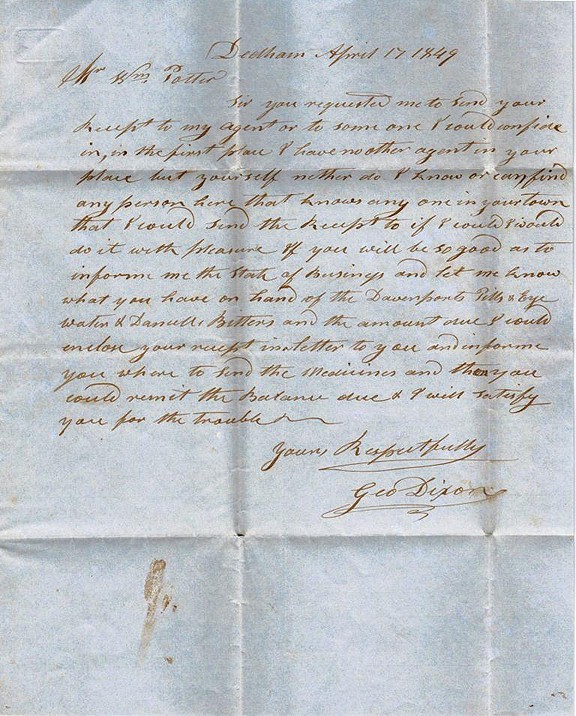 Dedham April 17 1849
Mr Wm Potter
Sir you requested me to send your
Recept to my agent or to some one I could confide
in, in the first place I have no other agent in your
place but yourself nether do I know or can find
any person here that knows any one in your town
that I could send the Recept to if I could I would
do it with pleasure If you will be so good as to
informe me the State of Busings and let me know
what you have on hand of the Davenports Pills & Eye
water & Bitters and the amount due I could
enclose your recept in letter to you and informe
you where to send the Medicines and then you
could remit the Balance due & I will satisfy
you for the trouble
Yours Respectfully
Geo Dixon